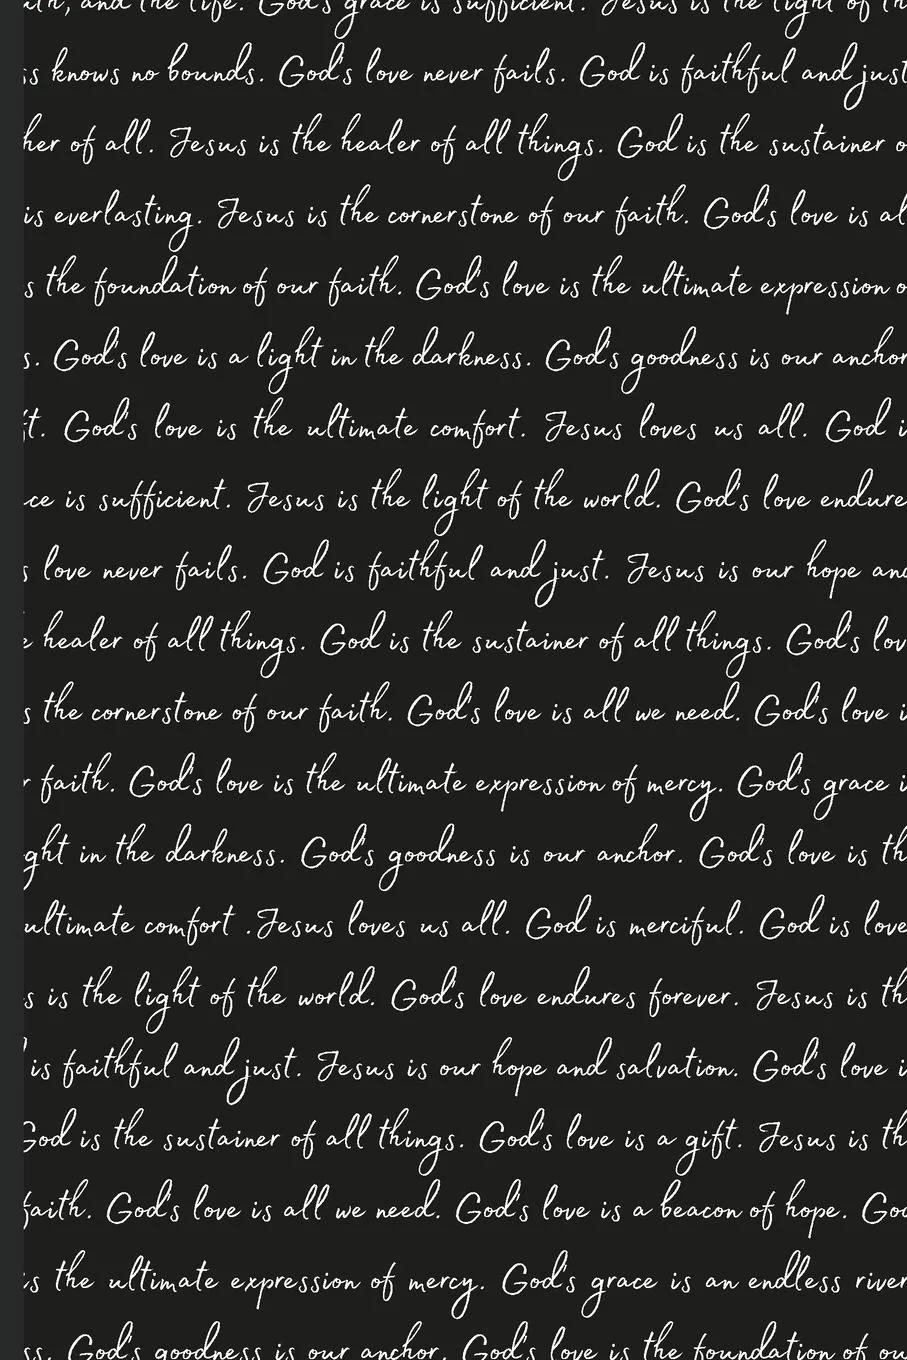 and the life. God's grace is sufficient. Jesus is the light of
knows no bounds. God's love never fails. God is faithful and just
of all. Jesus is the healer of all things. God is the sustainer
is everlasting. Jesus is the cornerstone of our faith. God's love is
the foundation of our faith. God's love is the ultimate expression
God's love is a light in the darkness. God's goodness is our anchor
God's love is the ultimate comfort. Jesus loves us all. God
is sufficient. Jesus is the light of the world. God's love endure
love never fails. God is faithful and just. Jesus is our hope
healer of all things. God is the sustainer of all things. God's
the cornerstone of our faith. God's love is all we need. God's love
faith. God's love is the ultimate expression of mercy. God's grace
in the darkness. God's goodness is our anchor. God's love is
ultimate comfort .Jesus loves us all. God is merciful. God is love
is the light of the world. God's love endures forever. Jesus is
is faithful and just. Jesus is our hope and salvation. God's love
God is the sustainer of all things. God's love is a gift. Jesus is
faith. God's love is all we need. God's love is a beacon of hope.
the ultimate expression of mercy. God's grace is an endless river
God's goodness is our anchor. God's love is the foundation of